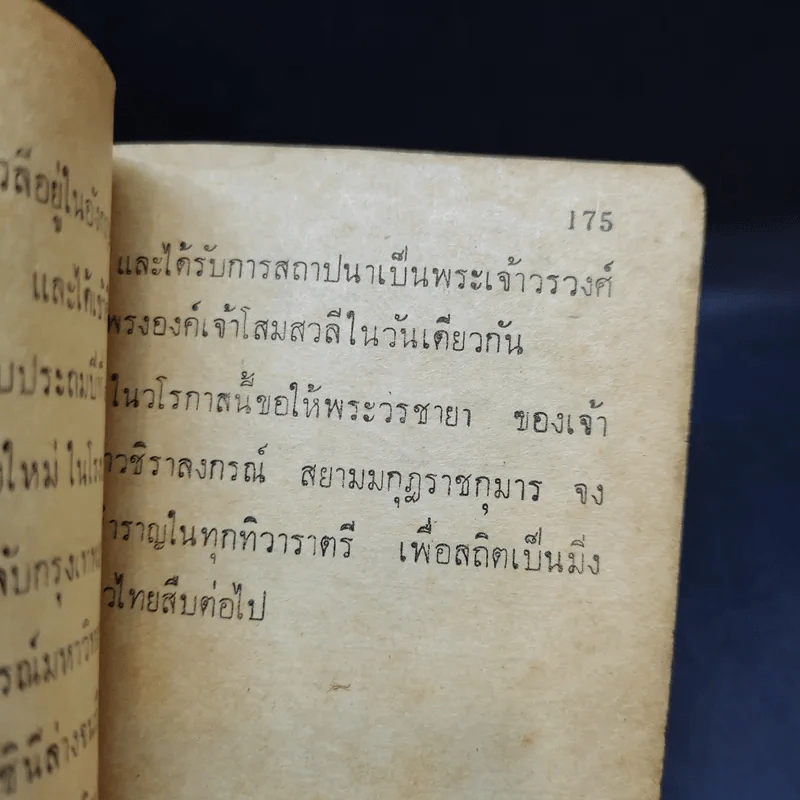 วลีอยู่ในอังก
และได้เข้
บประถมปีที่
งใหม่ ในโรง
จับกรุงเทพ
รณ์มหาวิท
ชินีล่างรน
175
และได้รับการสถาปนาเป็นพระเจ้าวรวงศ์
พรงองค์เจ้าโสมสวลีในวันเดียวกัน
ในวโรกาสนี้ขอให้พระวรชายา ของเจ้า
าวชิราลงกรณ์ สยามมกุฎราชกุมาร จง
ำราญในทุกทิวาราตรี เพื่อสถิตเป็นมิ่ง
วไทยสืบต่อไป